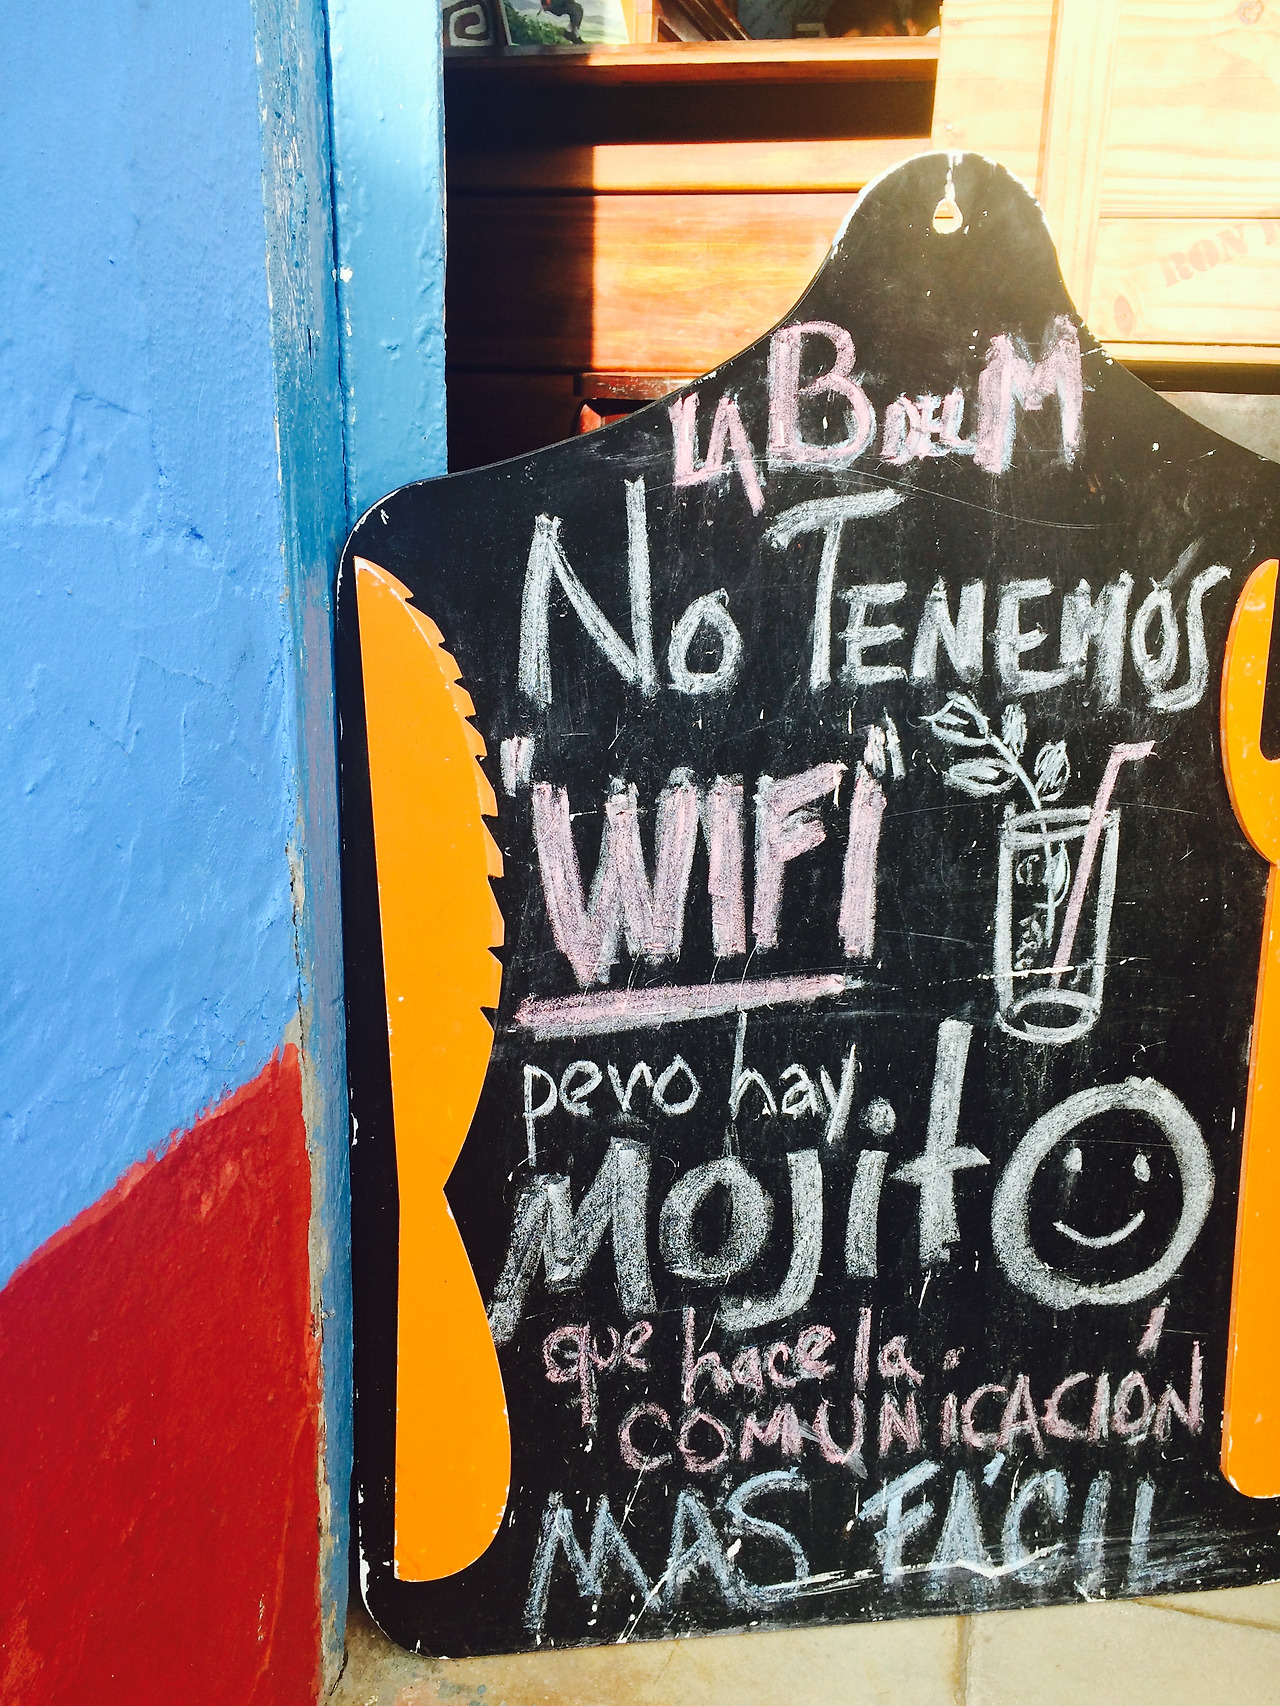 RON
LA B DEL M
No TENEMOS
"WIFI"
pero hay
Mojito
que hace la
COMUNICACIÓN
MAS FÁCIL